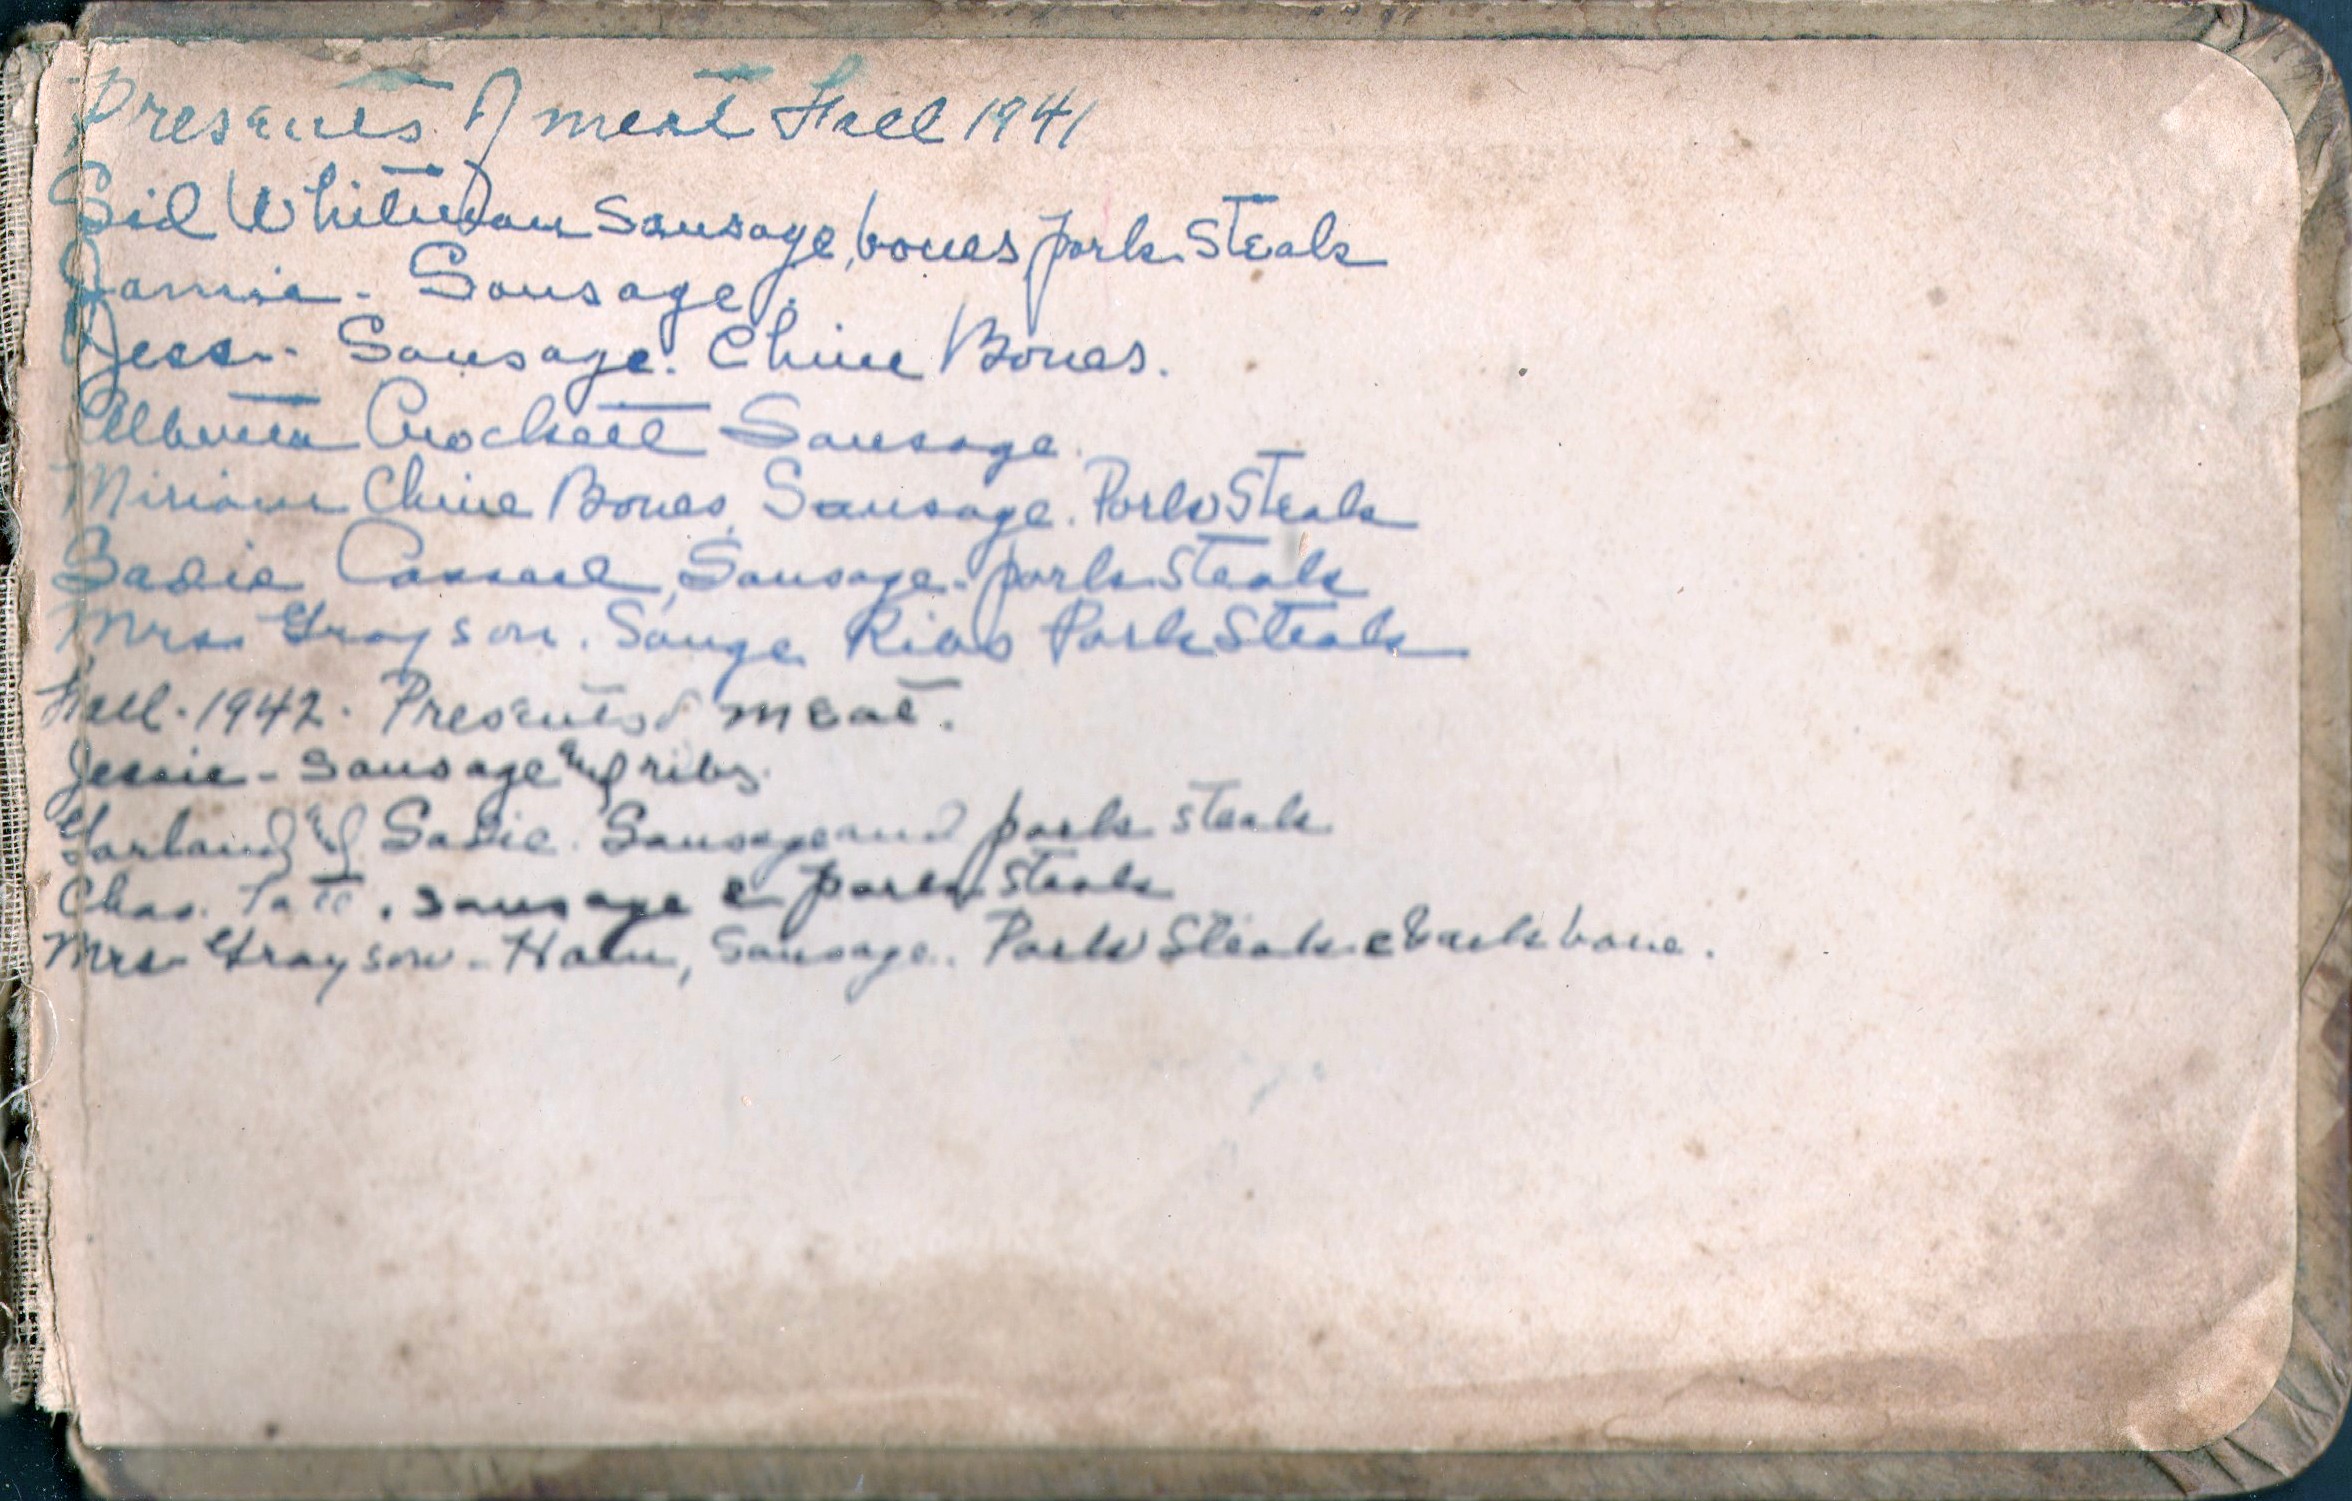 Presents of meat Fall 1941
Sid Whitman Sausage, bones pork Steak
Jamie - Sausage.
Jess - Sausage. Chine Bones.
Alberta Crockett Sausage.
Miriam Chine Bones, Sausage. Pork Steak
Sadie Cassell, Sausage - pork Steak
Mrs Grayson. Sauge Ribs Pork Steak
Fall. 1942. Presents of meat.
Jessie - Sausage and ribs.
Garland and Sadie. Sausage and pork steak
Chas. Tate. Sausage & pork Steak
Mrs Grayson - Ham, Sausage. Pork Steak & back bone.